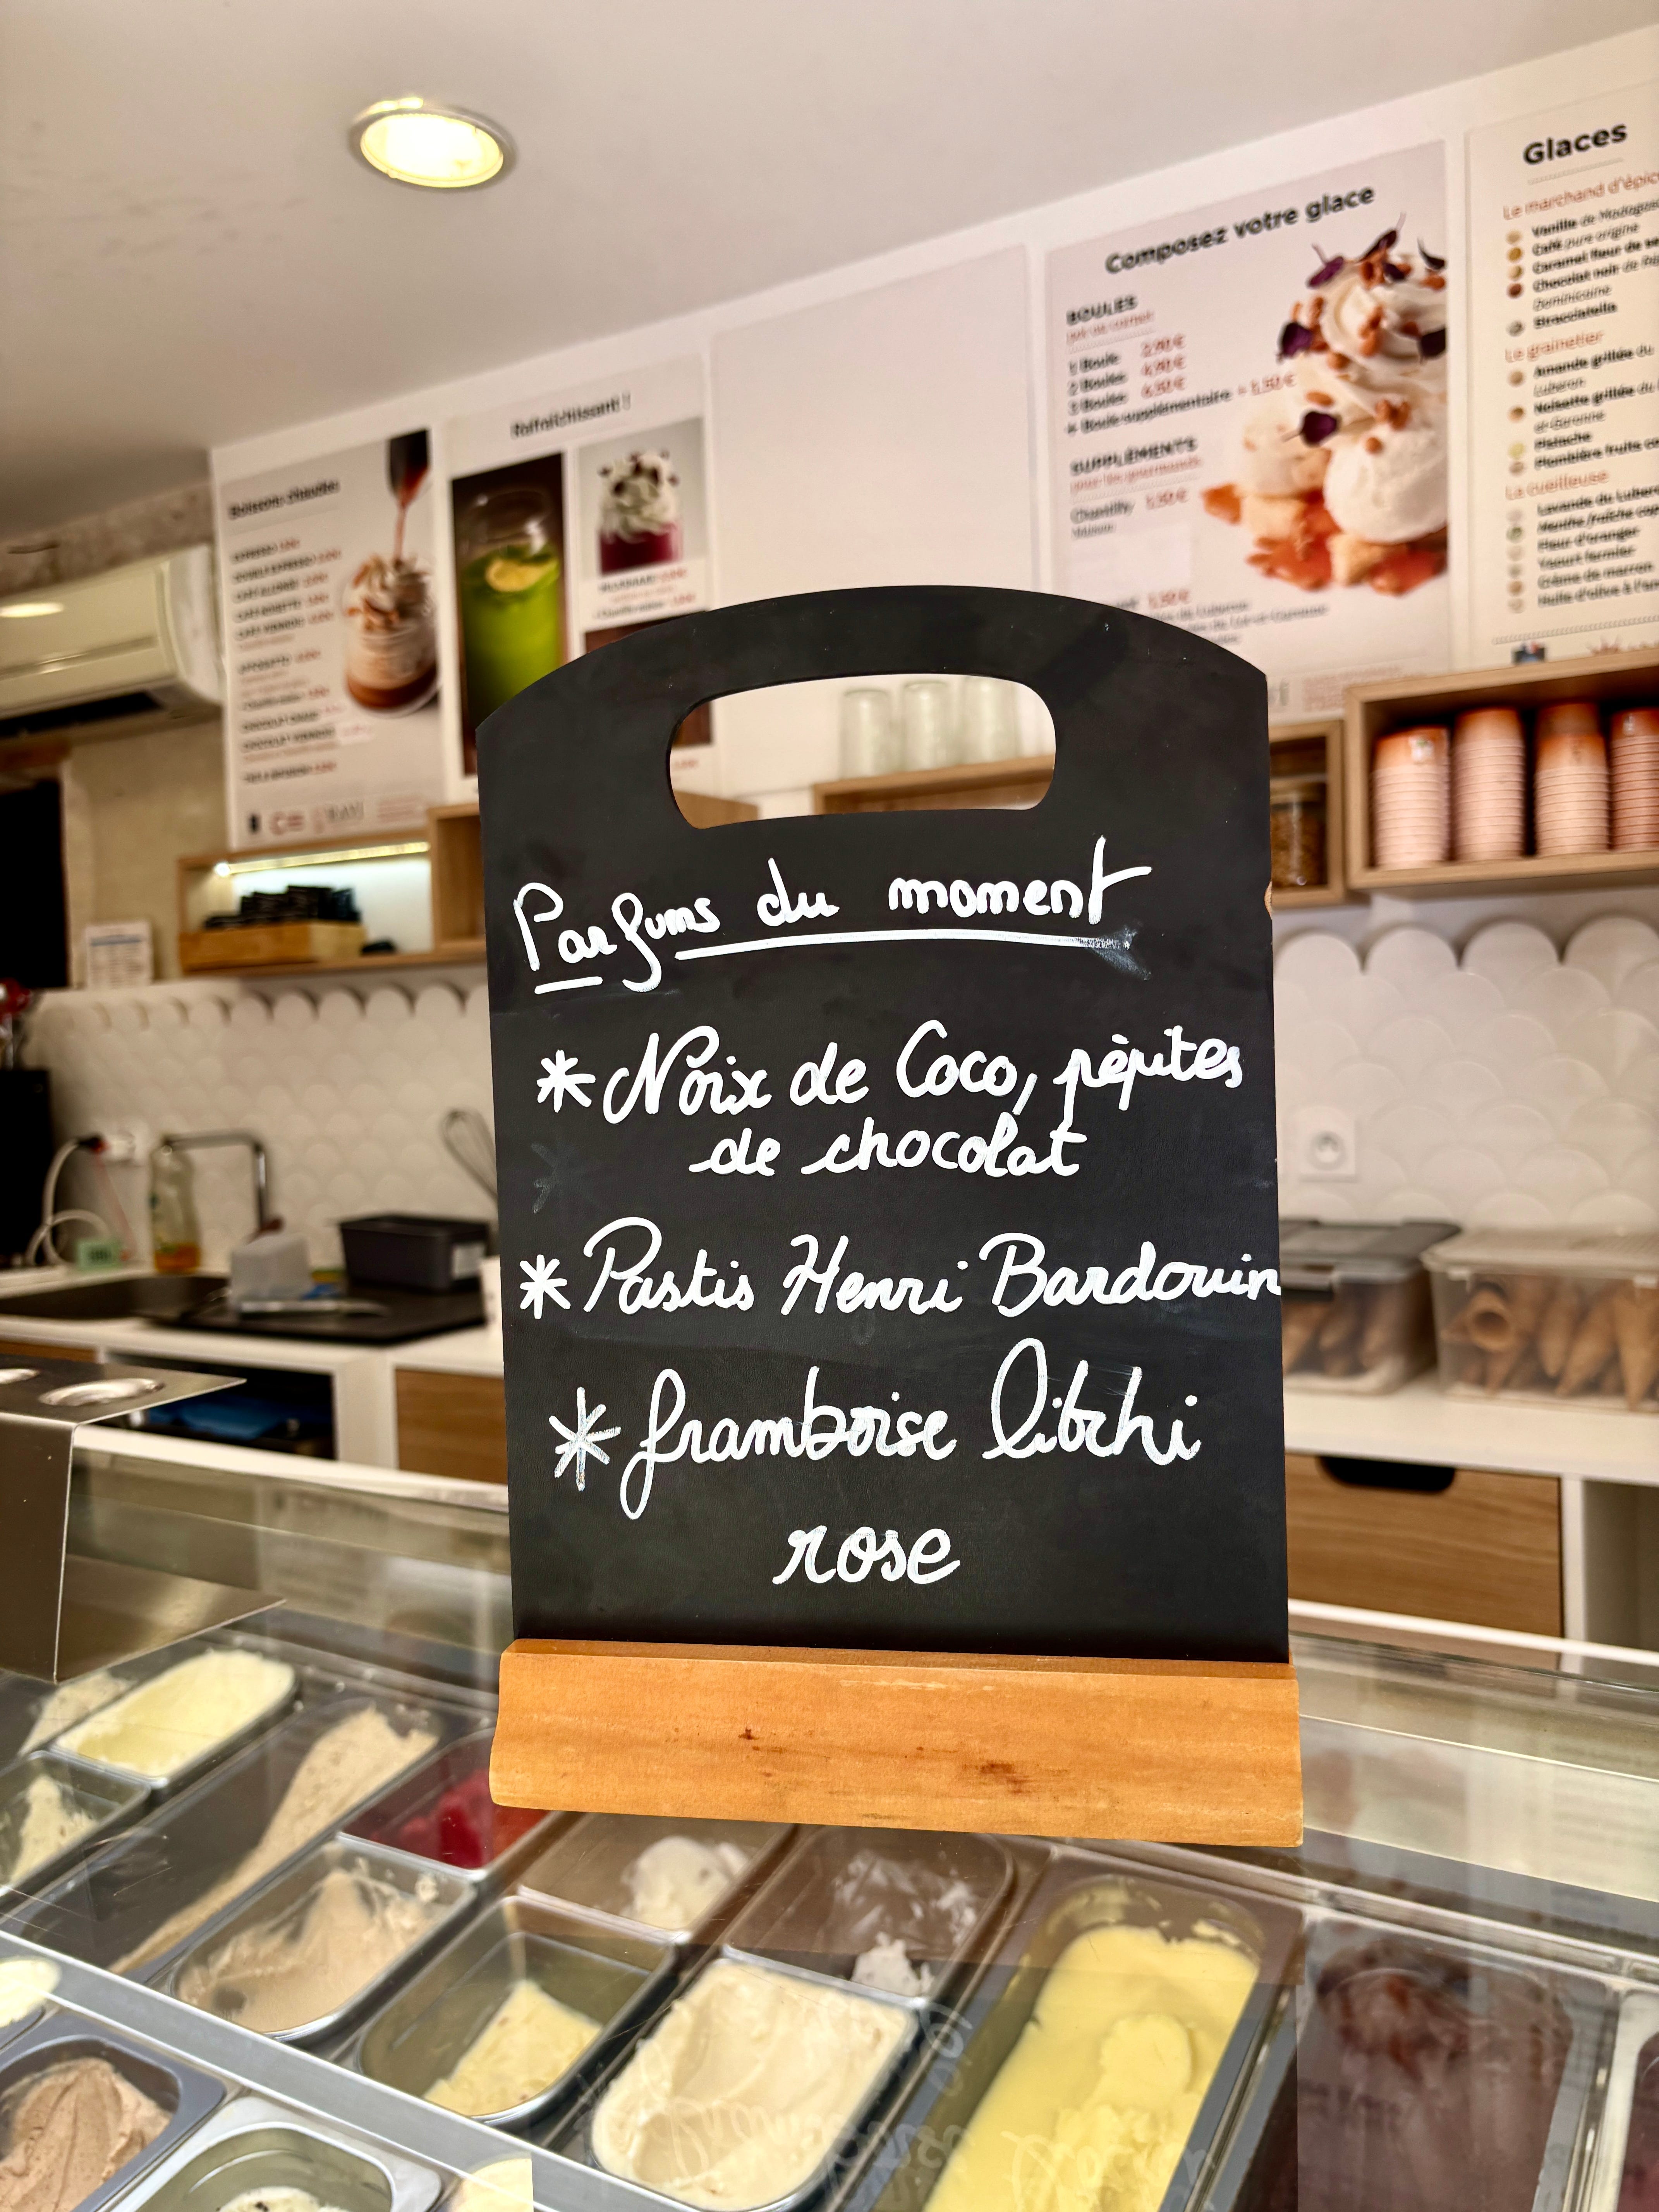 Parfums du moment
* Noix de Coco, pèpites
de chocolat
* Pastis Henri Bardouin
* framboise litchi
rose
Boissons chaudes
Rafraîchissant !
Composez votre glace
BOULES
1 Boule
2 Boules
3 Boules
+ Boule supplémentaire + 1,50 €
SUPPLÉMENTS
pour les gourmands
Chantilly 1,50 €
Glaces
Le marchand d'épic
Vanille de Madagas
Café pure origine
Caramel fleur de se
Chocolat noir de Rép
Dominicaine
Stracciatella
Le grainetier
Amande grillée du
Luberon
Noisette grillée du
et-Garonne
Pistache
Plombière fruits co
La cueilleuse
Lavande du Lubero
Menthe fraîche
Fleur d'oranger
Yaourt fermier
Crème de marron
Huile d'olive à l'an